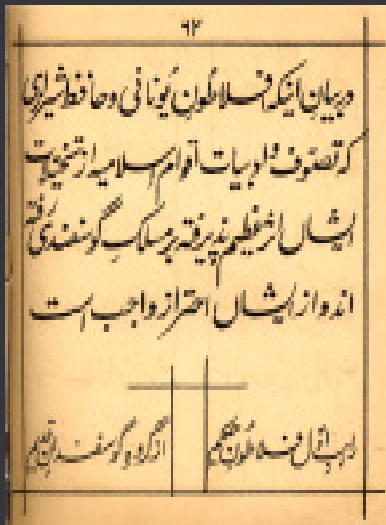 ۶۳
در بیان اینکه افلاطون یونانی و حافظ شیرازی
که تصوف و ادبیات اقوام اسلامیه از تخیلات
ایشان اثر عظیم پذیرفته بر مسلک گوسفندی رفته
اند و از ایشان احتراز واجب است
راهب اول فلاطون حکیم
از گروه گوسفندان قدیم